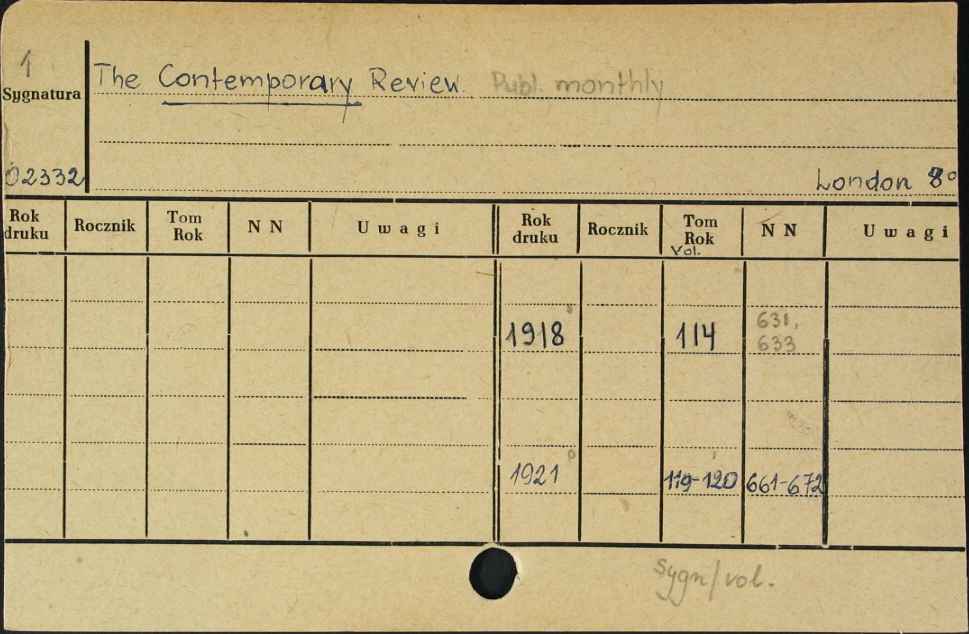 1
Sygnatura
The Contemporary Review. Publ. monthly
02332
London 8°
Rok druku Rocznik Tom Rok N N Uwagi Rok druku Rocznik Tom Rok Vol. N N Uwagi
1918 114 631, 633
1921 119-120 661-672
Sygn/vol.